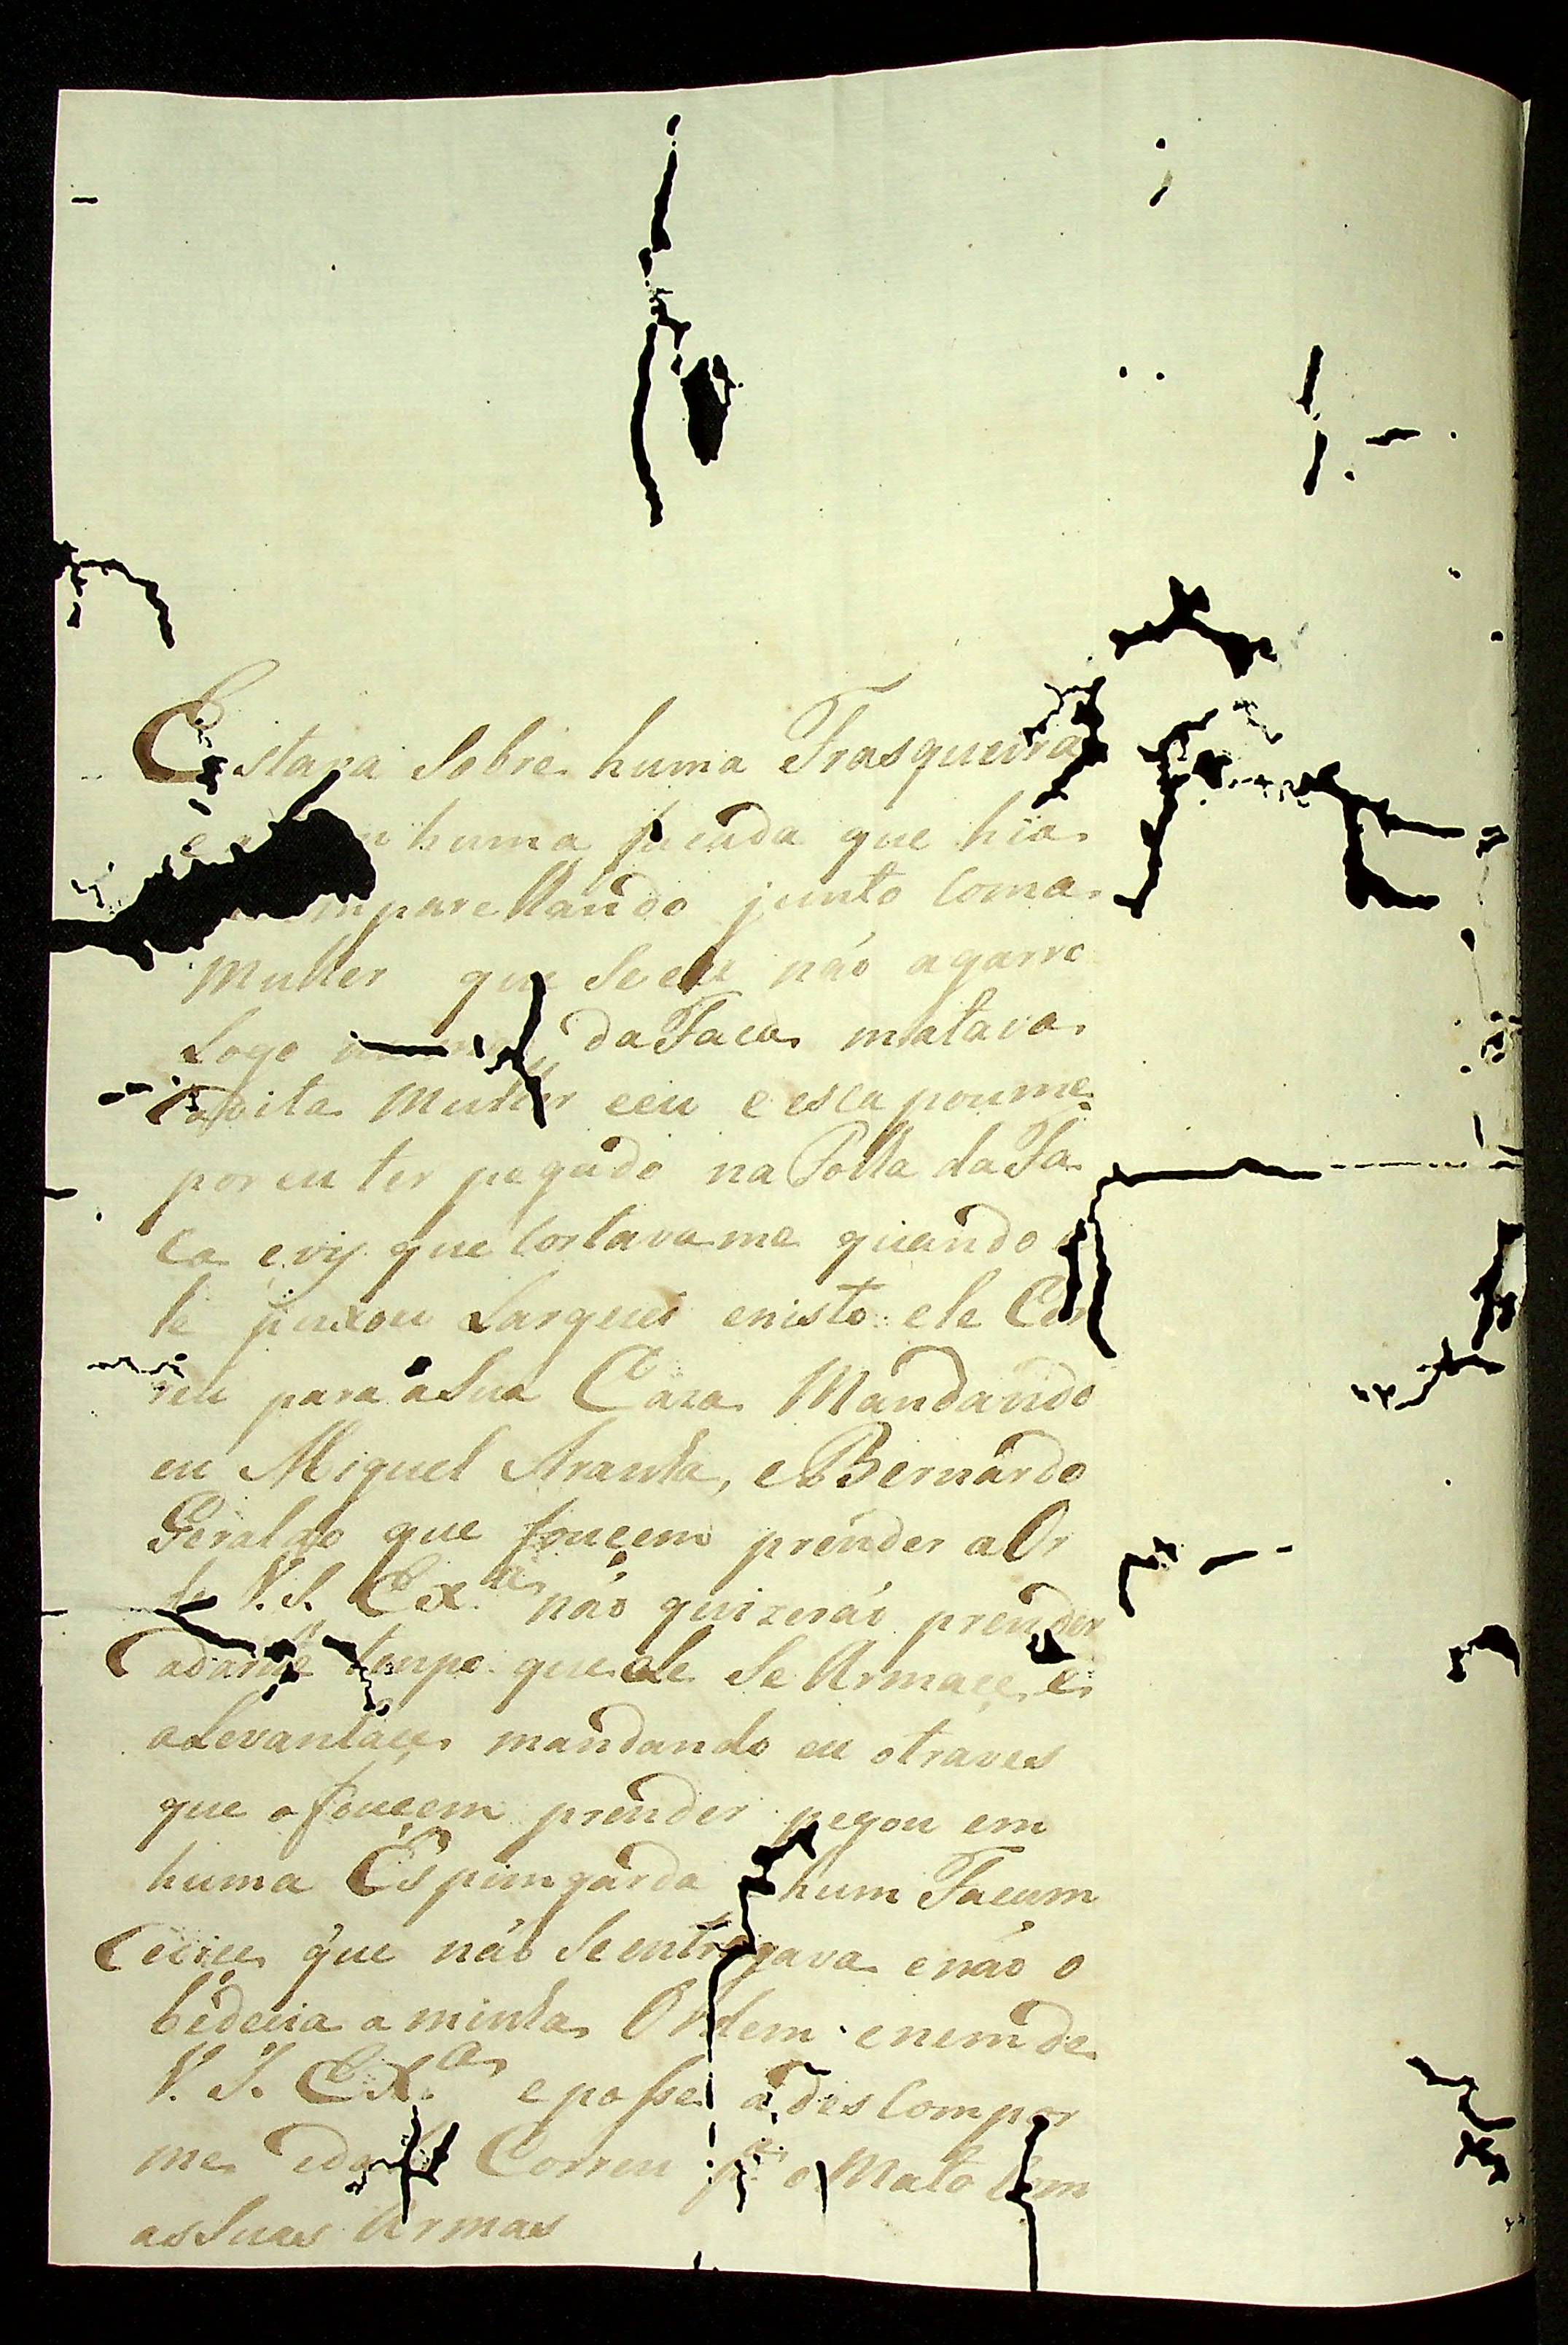 Estava Sobre huma Frasqueira
huma facada que hia
emparelhando junto Coma
Mulher que Se ele não agarro
Logo da Faca matava
adita Mulher eeu e escapoume
por eu ter pegado na Folha da Fa
ca evij que Cortavame quando e
le puxou Larguei enisto ele Cor
reu para aSua Caza Mandando
eu Miguel Aranha, e Bernardo
Geraldo que foucem prender a Or
de V. S. Ex.ª não quizeráo prender
adando tenpo que ele Se Armace, e
aLevantace mandando eu otraves
que o foucem prender pegou em
huma Espimgarda hum Facam
que não Se entregava enáo o
bedecia a minha Ordem enem de
V. S. EX.ª epasse a des Compor
me Correu p.ª o Mato Com
as Suas Armas